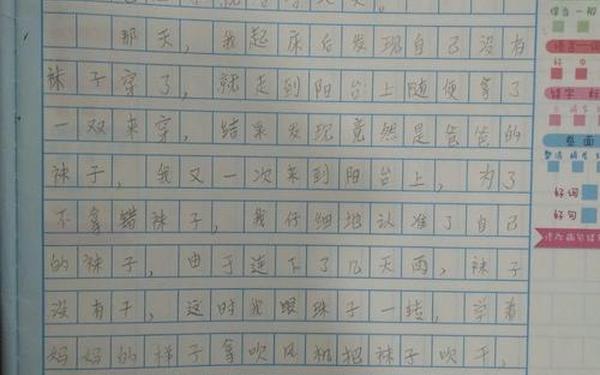 那天，我起床后发现自己没有
袜子穿了，就走到阳台上随便拿了
一双来穿，结果发现竟然是爸爸的
袜子，我又一次来到阳台上，为了
不拿错袜子，我仔细地认准了自己
的袜子，由于连下了几天雨，袜子
没有干，这时我眼珠子一转，学着
妈妈的样子拿吹风机把袜子吹干，
恰当 一般
好词
好句